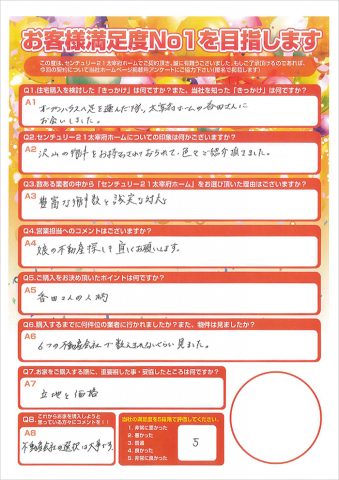 お客様満足度No1を目指します
この度は、センチュリー21太宰府ホームでご契約頂き、誠に有難うございました。もしご了承頂けるのであれば、
今回の契約について当社ホームページ掲載用アンケートにご協力下さい(匿名で掲載します)
Q1.住宅購入を検討した「きっかけ」は何ですか?また、当社を知った「きっかけ」は何ですか?
A1
オープンハウスへ足を運んだ際、太宰府ホームの吝田さんに
お会いしました。
Q2.センチュリー21太宰府ホームについての印象は何かございますか?
A2
沢山の物件をお持ちでおられて、色々ご紹介頂きました。
Q3.数ある業者の中から「センチュリー21太宰府ホーム」をお選び頂いた理由はございますか?
A3
豊富な物件数と誠実な対応
Q4.営業担当へのコメントはございますか?
A4
娘の不動産探しも宜しくお願いします。
Q5.ご購入をお決め頂いたポイントは何ですか?
A5
さんの人柄
Q6.購入するまでに何件位の業者に行かれましたか?また、物件は見ましたか?
A6
6つの不動産会社で数えきれないぐらい見ました。
Q7.お家をご購入する際に、重要視した事・妥協したところは何ですか?
A7
立地と価格
Q8.
これからお家を購入しようと
思っている方々にコメントを!!
A8
不動産会社の選択は大事です。
当社の満足度を5段階で評価してください。
1. 非常に悪かった
2. 悪かった
3. 普通
4. 良かった
5. 非常に良かった
5